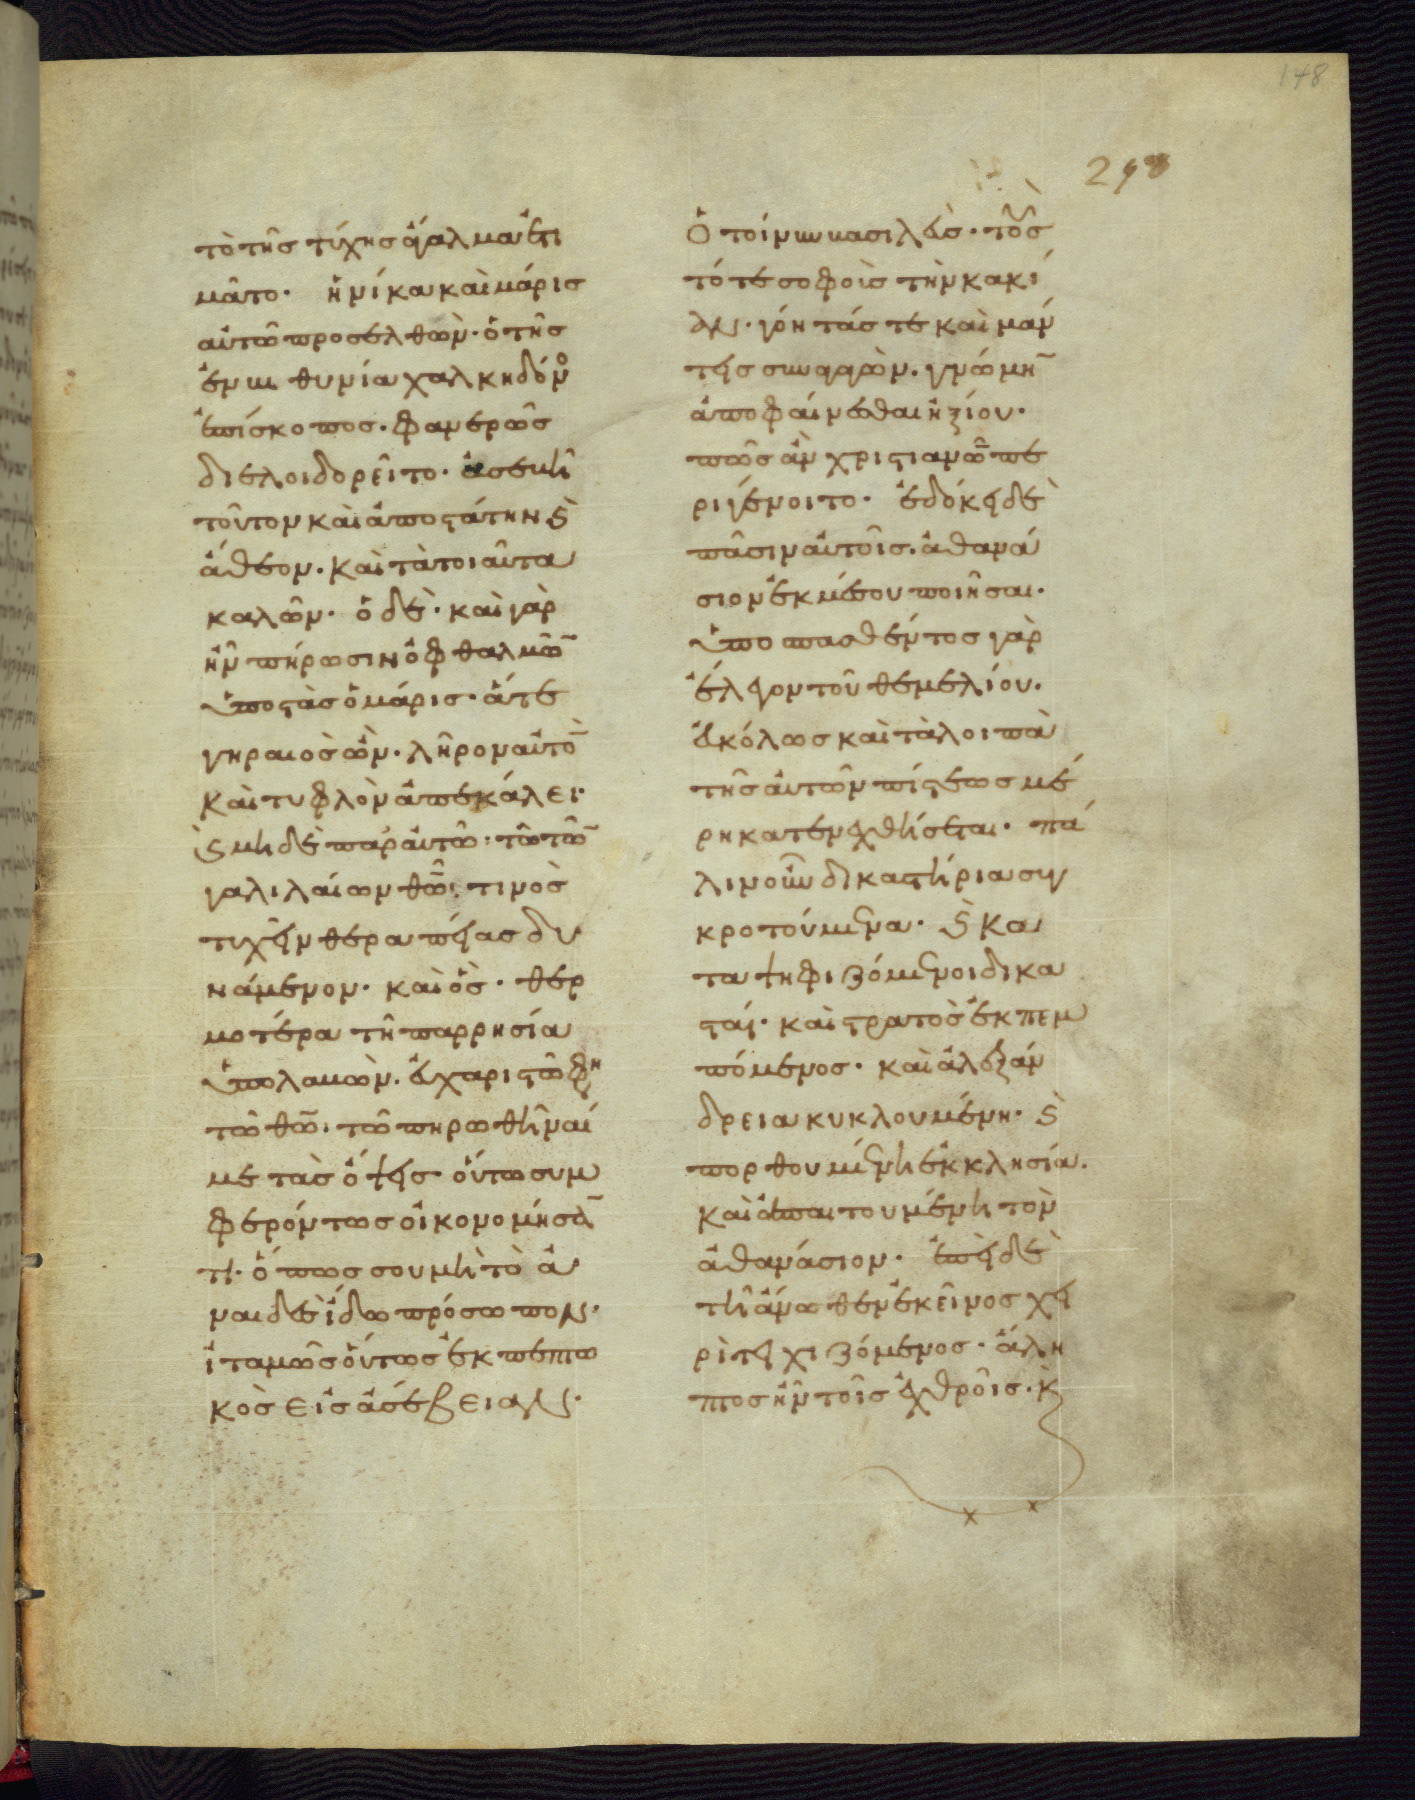 148
298
τὸ τῆς τύχης ἄγαλμα ἐτι
μᾶτο· ἡνίκα καὶ μάρις
αὐτῶ προσελθὼν· ὁ τῆς
ἐν βιθυνία χαλκηδόνο
ἐπίσκοπος· φανερῶς
διελοιδορεῖτο· ἀσεβῆ
τοῦτον καὶ ἀποστάτην καὶ
ἄθεον· καὶ τὰ τοιαῦτα
καλῶν· ὁ δὲ· καὶ γὰρ
ἦν πήρωσιν ὀφθαλμῶ
ὑποστὰς ὁ μάρις· ἅτε
γηραιὸς ὢν· λῆρον αὐτὸ
καὶ τυφλὸν ἀπεκάλει·
καὶ μὴ δὲ παρ αὐτῶ τῶ τῶ
γαλιλαίων θῶ· τινὸς
τυχεῖν θεραπείας δυ
νάμενον· καὶ ὃς· θερ
μοτέρα τῆ παρρησία
ὑπολαβὼν· εὐχαριστῶ φη
τῶ θῶ· τῶ πηρωθῆναί
με τὰς ὄψεις οὕτω συμ
φερόντως οἰκονομήσα
τι· ὅπως σου μὴ τὸ ἀ
ναιδὲς ἴδω πρόσωπον·
ἰταμῶς οὕτως ἐκπεπτω
κὸς εἰς ἀσέβειαν·
Ὅτοίνυν βασιλεὺς· τοὺς
τότε σοφοὺς τὴν κακί
αν· γόητάς τε καὶ μάν
τεις συναγαγὼν· γνώμη
ἀποφαίνεσθαι ἠξίου·
πῶς ἂν χριστιανῶ πε
ριγένοιτο· ἐδόκει δὲ
πᾶσιν αὐτοῖς· ἀθανά
σιον ἐκ μέσου ποιῆσαι·
ὑποσπασθέντος γὰρ
ἔλεγον τοῦ θεμελίου·
εὐκόλως καὶ τὰ λοιπὰ
τῆς αὐτῶν πίστεως μέ
ρη κατενεχθήσεται· πά
λιν οὖν δικαστήρια συγ
κροτούμενα· καὶ κα
ταψηφιζόμενοι δικα
σταί· καὶ στρατὸς ἐκπεμ
πόμενος· καὶ ἀλεξάν
δρεια κυκλουμένη· καὶ
πορθουμένη ἐκκλησία·
καὶ ἀπαιτουμένη τὸν
ἀθανάσιον· ἐπεὶ δὲ
τῆ ἄνωθεν ἐκεῖνος χει
ρὶ τειχιζόμενος· ἄλη
πτος ἦν τοῖς ἐχθροῖς· κ